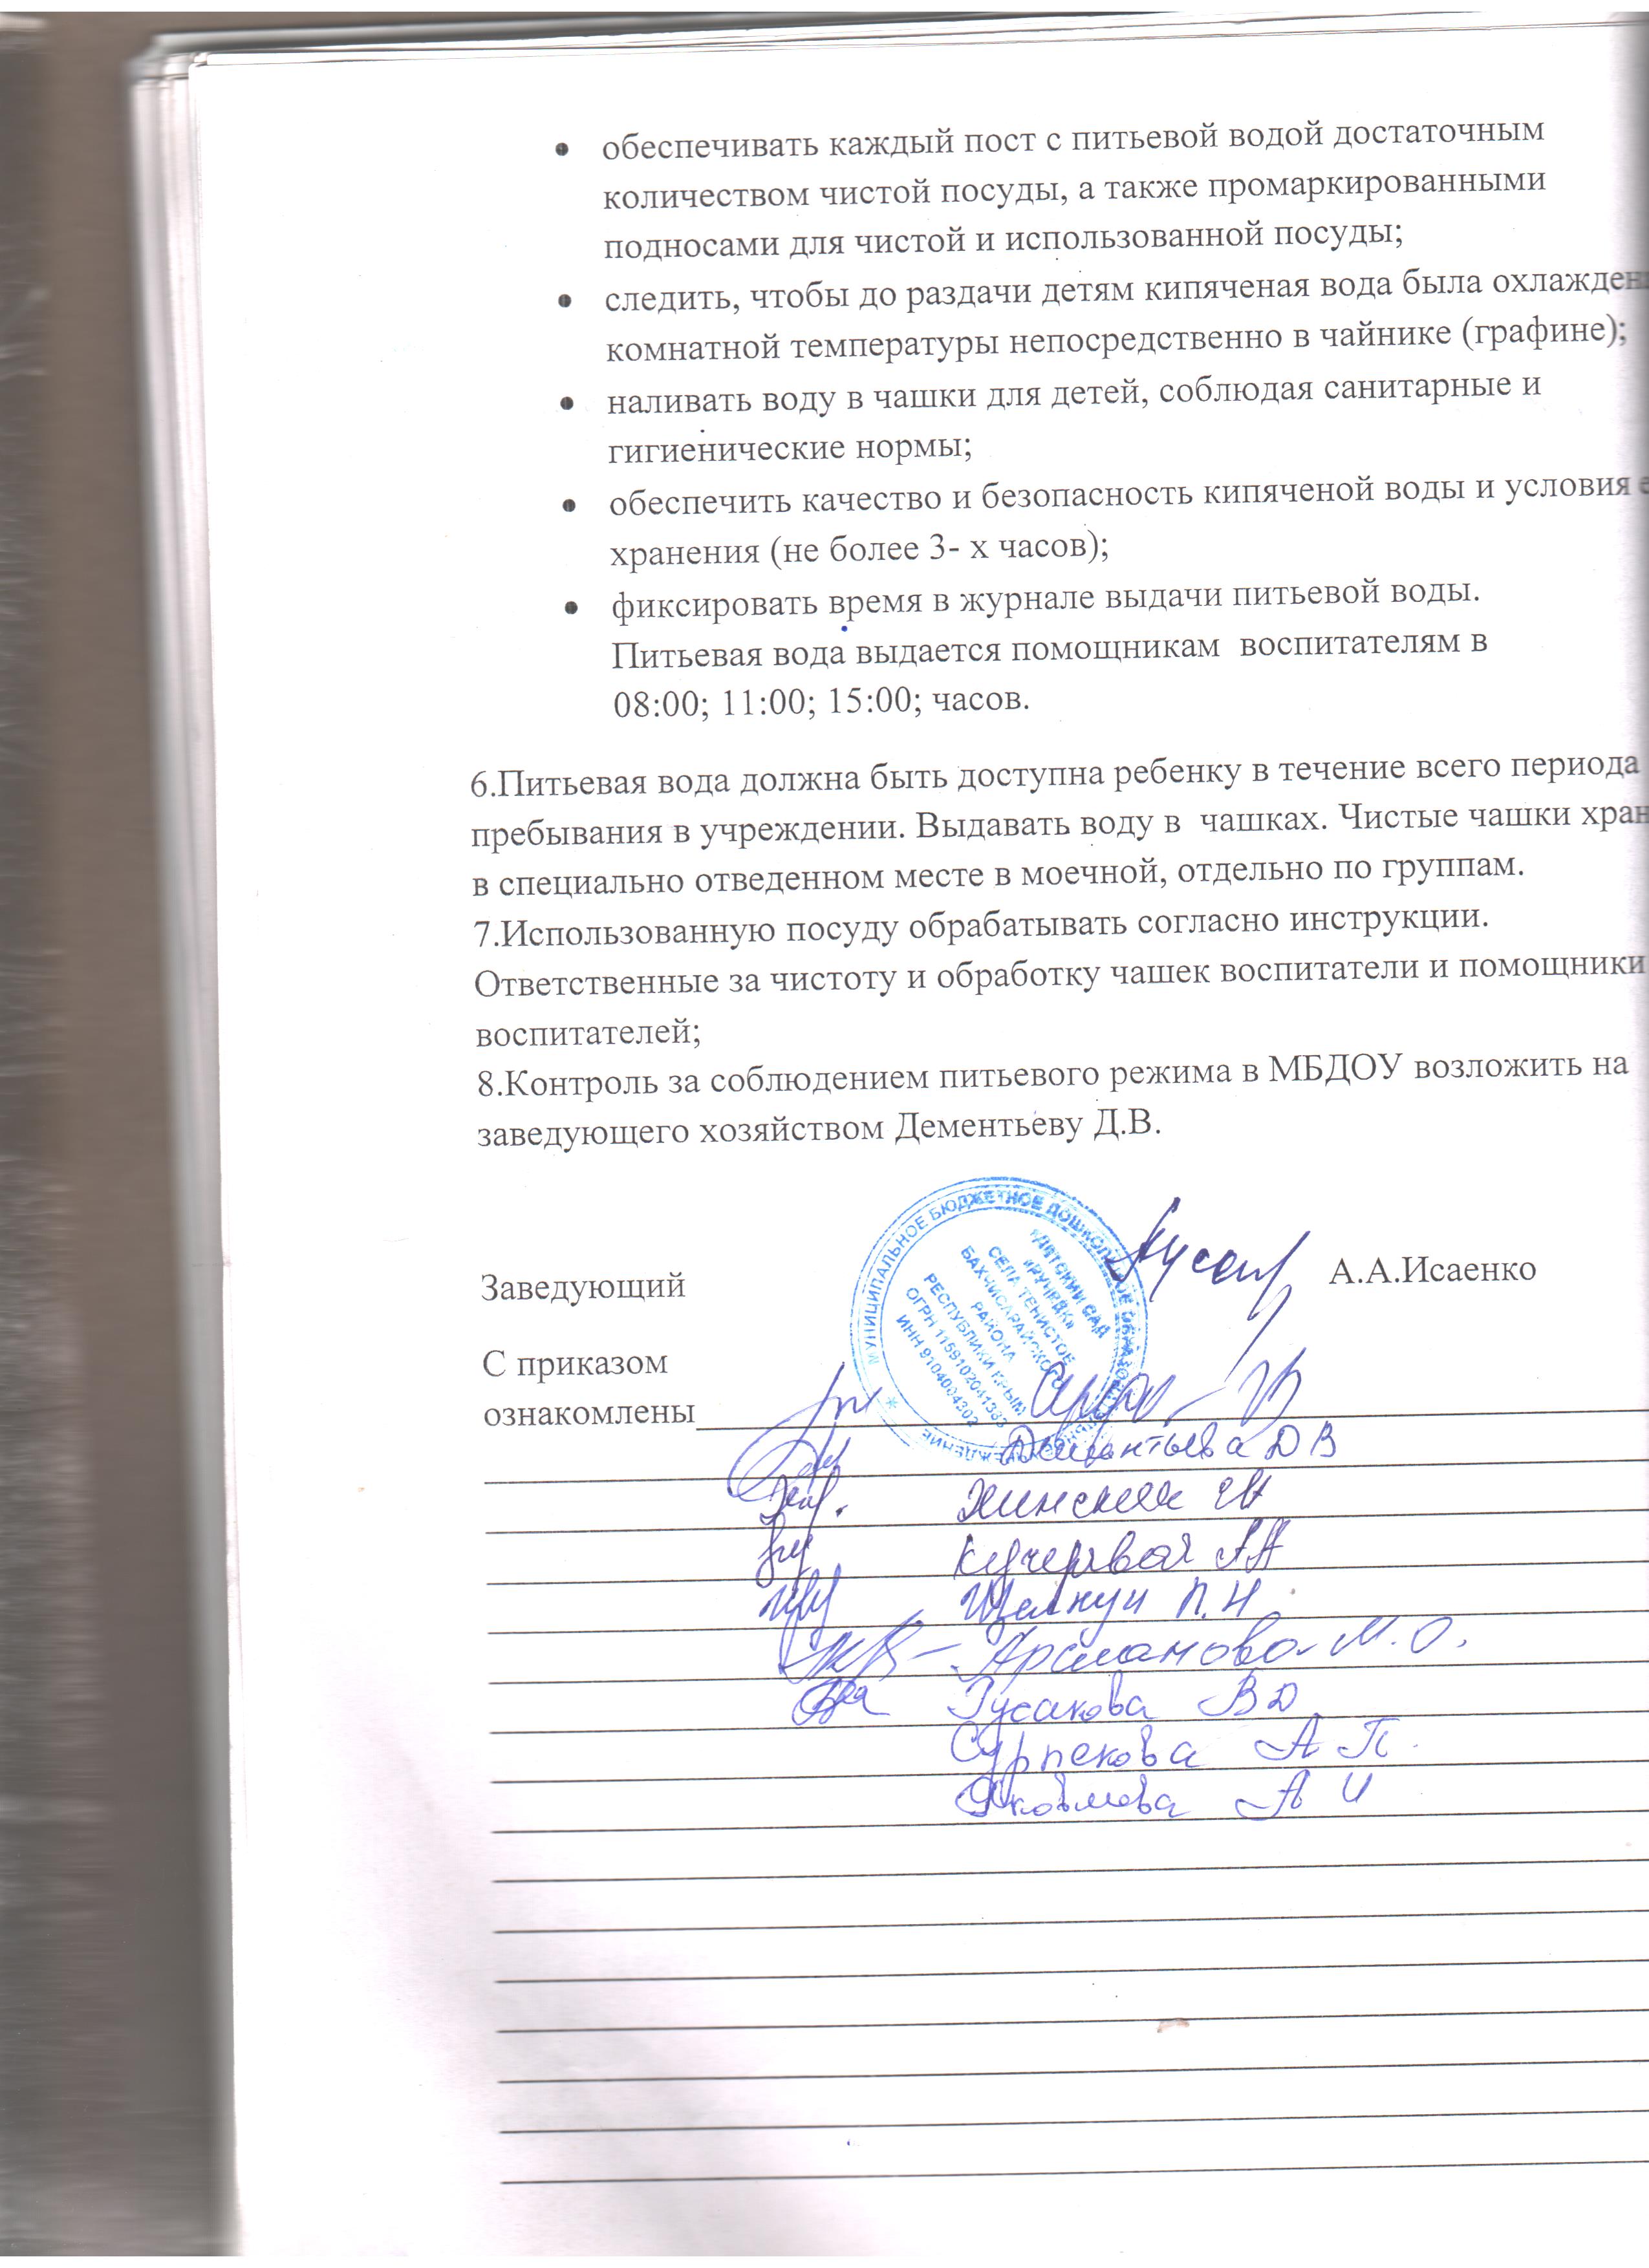 • обеспечивать каждый пост с питьевой водой достаточным
количеством чистой посуды, а также промаркированными
подносами для чистой и использованной посуды;
• следить, чтобы до раздачи детям кипяченая вода была охлажден
комнатной температуры непосредственно в чайнике (графине);
• наливать воду в чашки для детей, соблюдая санитарные и
гигиенические нормы;
• обеспечить качество и безопасность кипяченой воды и условия
хранения (не более 3- х часов);
• фиксировать время в журнале выдачи питьевой воды.
Питьевая вода выдается помощникам воспитателям в
08:00; 11:00; 15:00; часов.
6.Питьевая вода должна быть доступна ребенку в течение всего периода
пребывания в учреждении. Выдавать воду в чашках. Чистые чашки хран
в специально отведенном месте в моечной, отдельно по группам.
7.Использованную посуду обрабатывать согласно инструкции.
Ответственные за чистоту и обработку чашек воспитатели и помощники
воспитателей;
8.Контроль за соблюдением питьевого режима в МБДОУ возложить на
заведующего хозяйством Дементьеву Д.В.
МУНИЦИПАЛЬНОЕ БЮДЖЕТНОЕ ДОШКОЛЬНОЕ ОБРАЗОВАТЕЛЬНОЕ УЧРЕЖДЕНИЕ
«ДЕТСКИЙ САД
«РУЧЕЕК»
СЕЛА ТЕНИСТОЕ
БАХЧИСАРАЙСКОГО
РАЙОНА
РЕСПУБЛИКИ КРЫМ
ИНН 9104004302
Заведующий А.А.Исаенко
С приказом
ознакомлены
Дементьева Д В
Кучерявая А А
П. Н.
Арсланова М. О.
Гусакова В Д
А П.
Яковлева А И